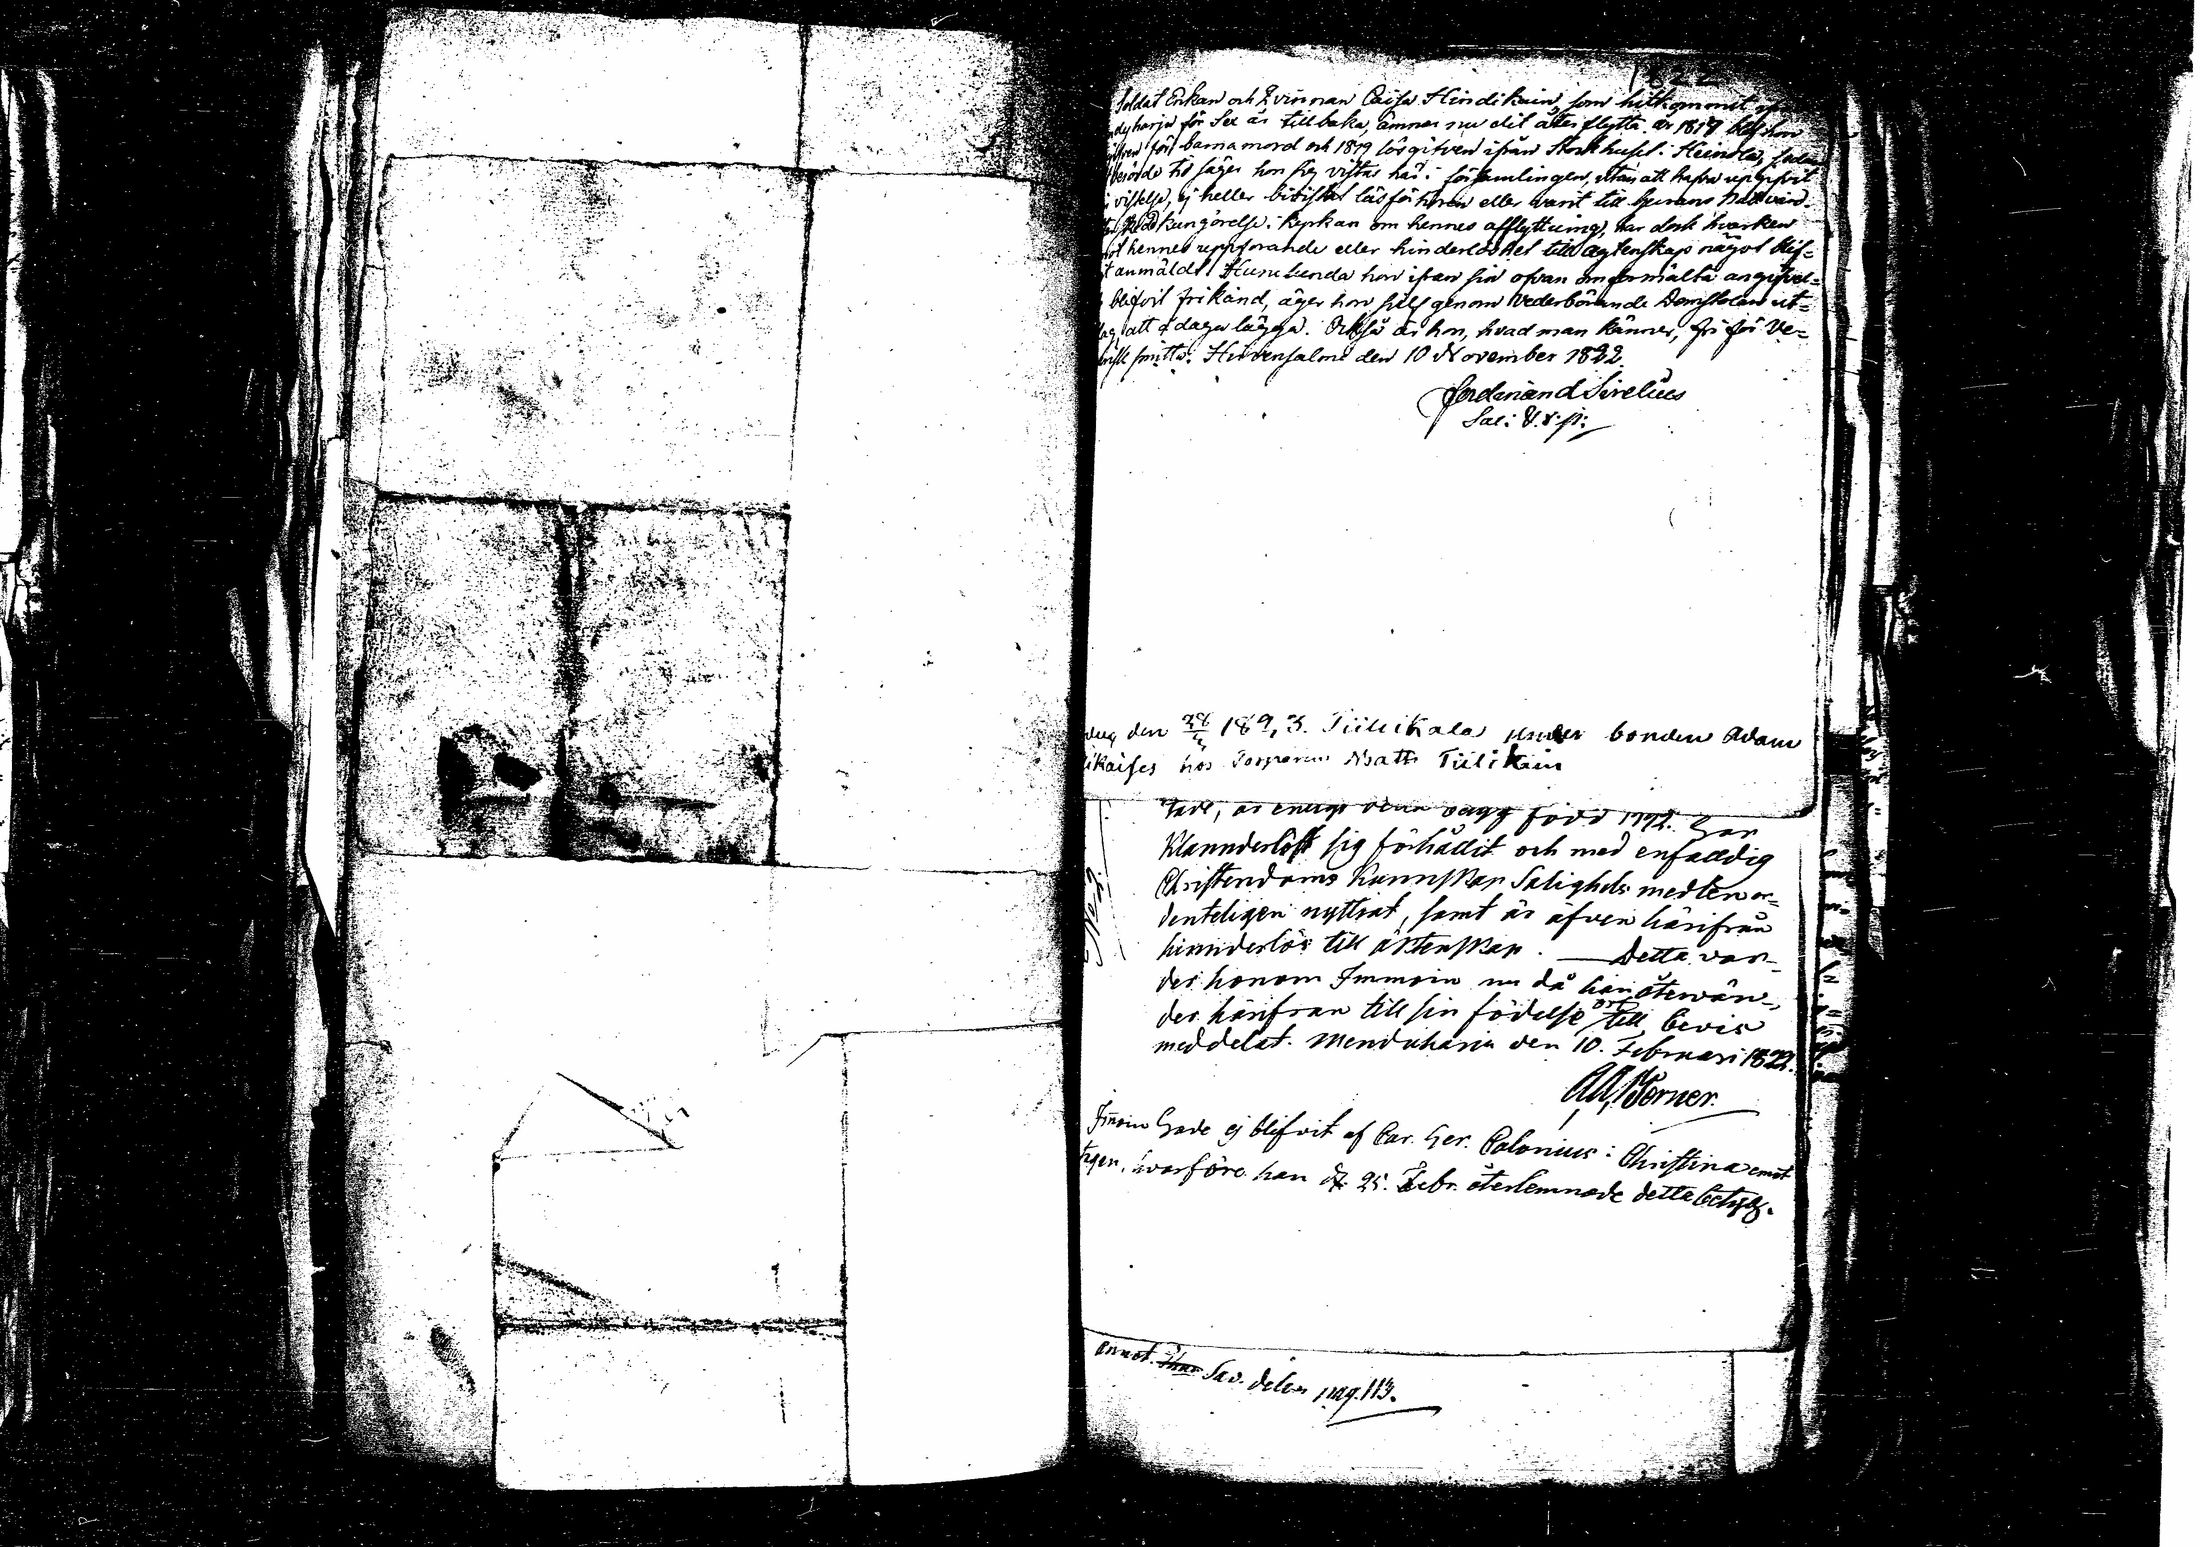 1822
Soldat Enkan och Qvinnan Caisa Hindikain, som hitkommit
dyharju för Sex år tillbaka, ämnar nu dit åter flytta. år 1819 blef hon
för barnamord och 1819 lösgifven ifrån Korrkhuset i Heinola, sedan
berörde tid säger hon sig vistas här i församlingen, utan att hafva uppgifvit
vistelse, ej heller bivistat läsförhören eller varit till Herrans Nattvard.
kungörelse i kyrkan om hennes afflyttning, har dock hvarken
hennes uppförande eller hinderlöshet till ägtenskap något blif-
t anmäldt. Huruvida hon ifrån sin ofvan omförmälta angifvel-
blifvit frikänd, äger hon sjelf genom vederbörande Domstolens ut-
lag att å daga lägga. Också är hon, hvad man känner, fri för Ve-
smitta. Hirvensalmi den 10 November 1822
Ferdinand Sirelius
Sac: V. d. p:
den 28 1823. Tiilikala under bonden Adam
ikaises hos Torparen Matts Tiilikain
född 1792. Har
Klannderlöst sig förhållit och med enfalldig
Christendoms Kunnskap Salighets medlen or-
denteligen nyttiat, samt är äfven härifrån
hinnderlös till äktenskap. — Detta var-
der honom Immoin nu då han återvän-
der härifran till sin födelse ort till bevis
meddelat. Menduharju den 10. Februari 1822.
Ad. Porner.
No 2.
Immoin Hade ej blifvit af Car. Her. Calonius i Christina emot
tagen, hvarföre han d. 25. Febr. återlemnade detta betyg.
annot. Sav. delen pag. 113.